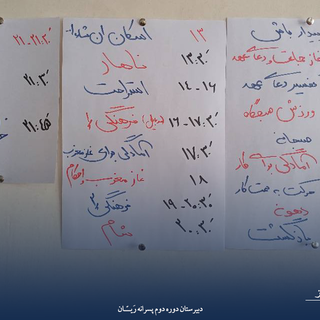 بیدار باش
نماز جماعت و دعای عهد
تفسیر دعای عهد
ورزش صبحگاه
صبحانه
آمادگی برای کار
حرکت به سمت کار
بازگشت
۱۳ اسکان ان شاءا...
۱۳:۳۰ ناهار
۱۴-۱۶ استراحت
۱۶-۱۷:۳۰ فرهنگی ۱
۱۷:۳۰ آمادگی برای نماز مغرب
۱۸ نماز مغرب و احکام
۱۹-۲۰:۳۰ فرهنگی ۲
۲۰:۳۰ شام
۲۱-۲۱:۳۰
۲۱:۳۰
۲۱:۴۵
دبیرستان دوره دوم پسرانه رَبّسان